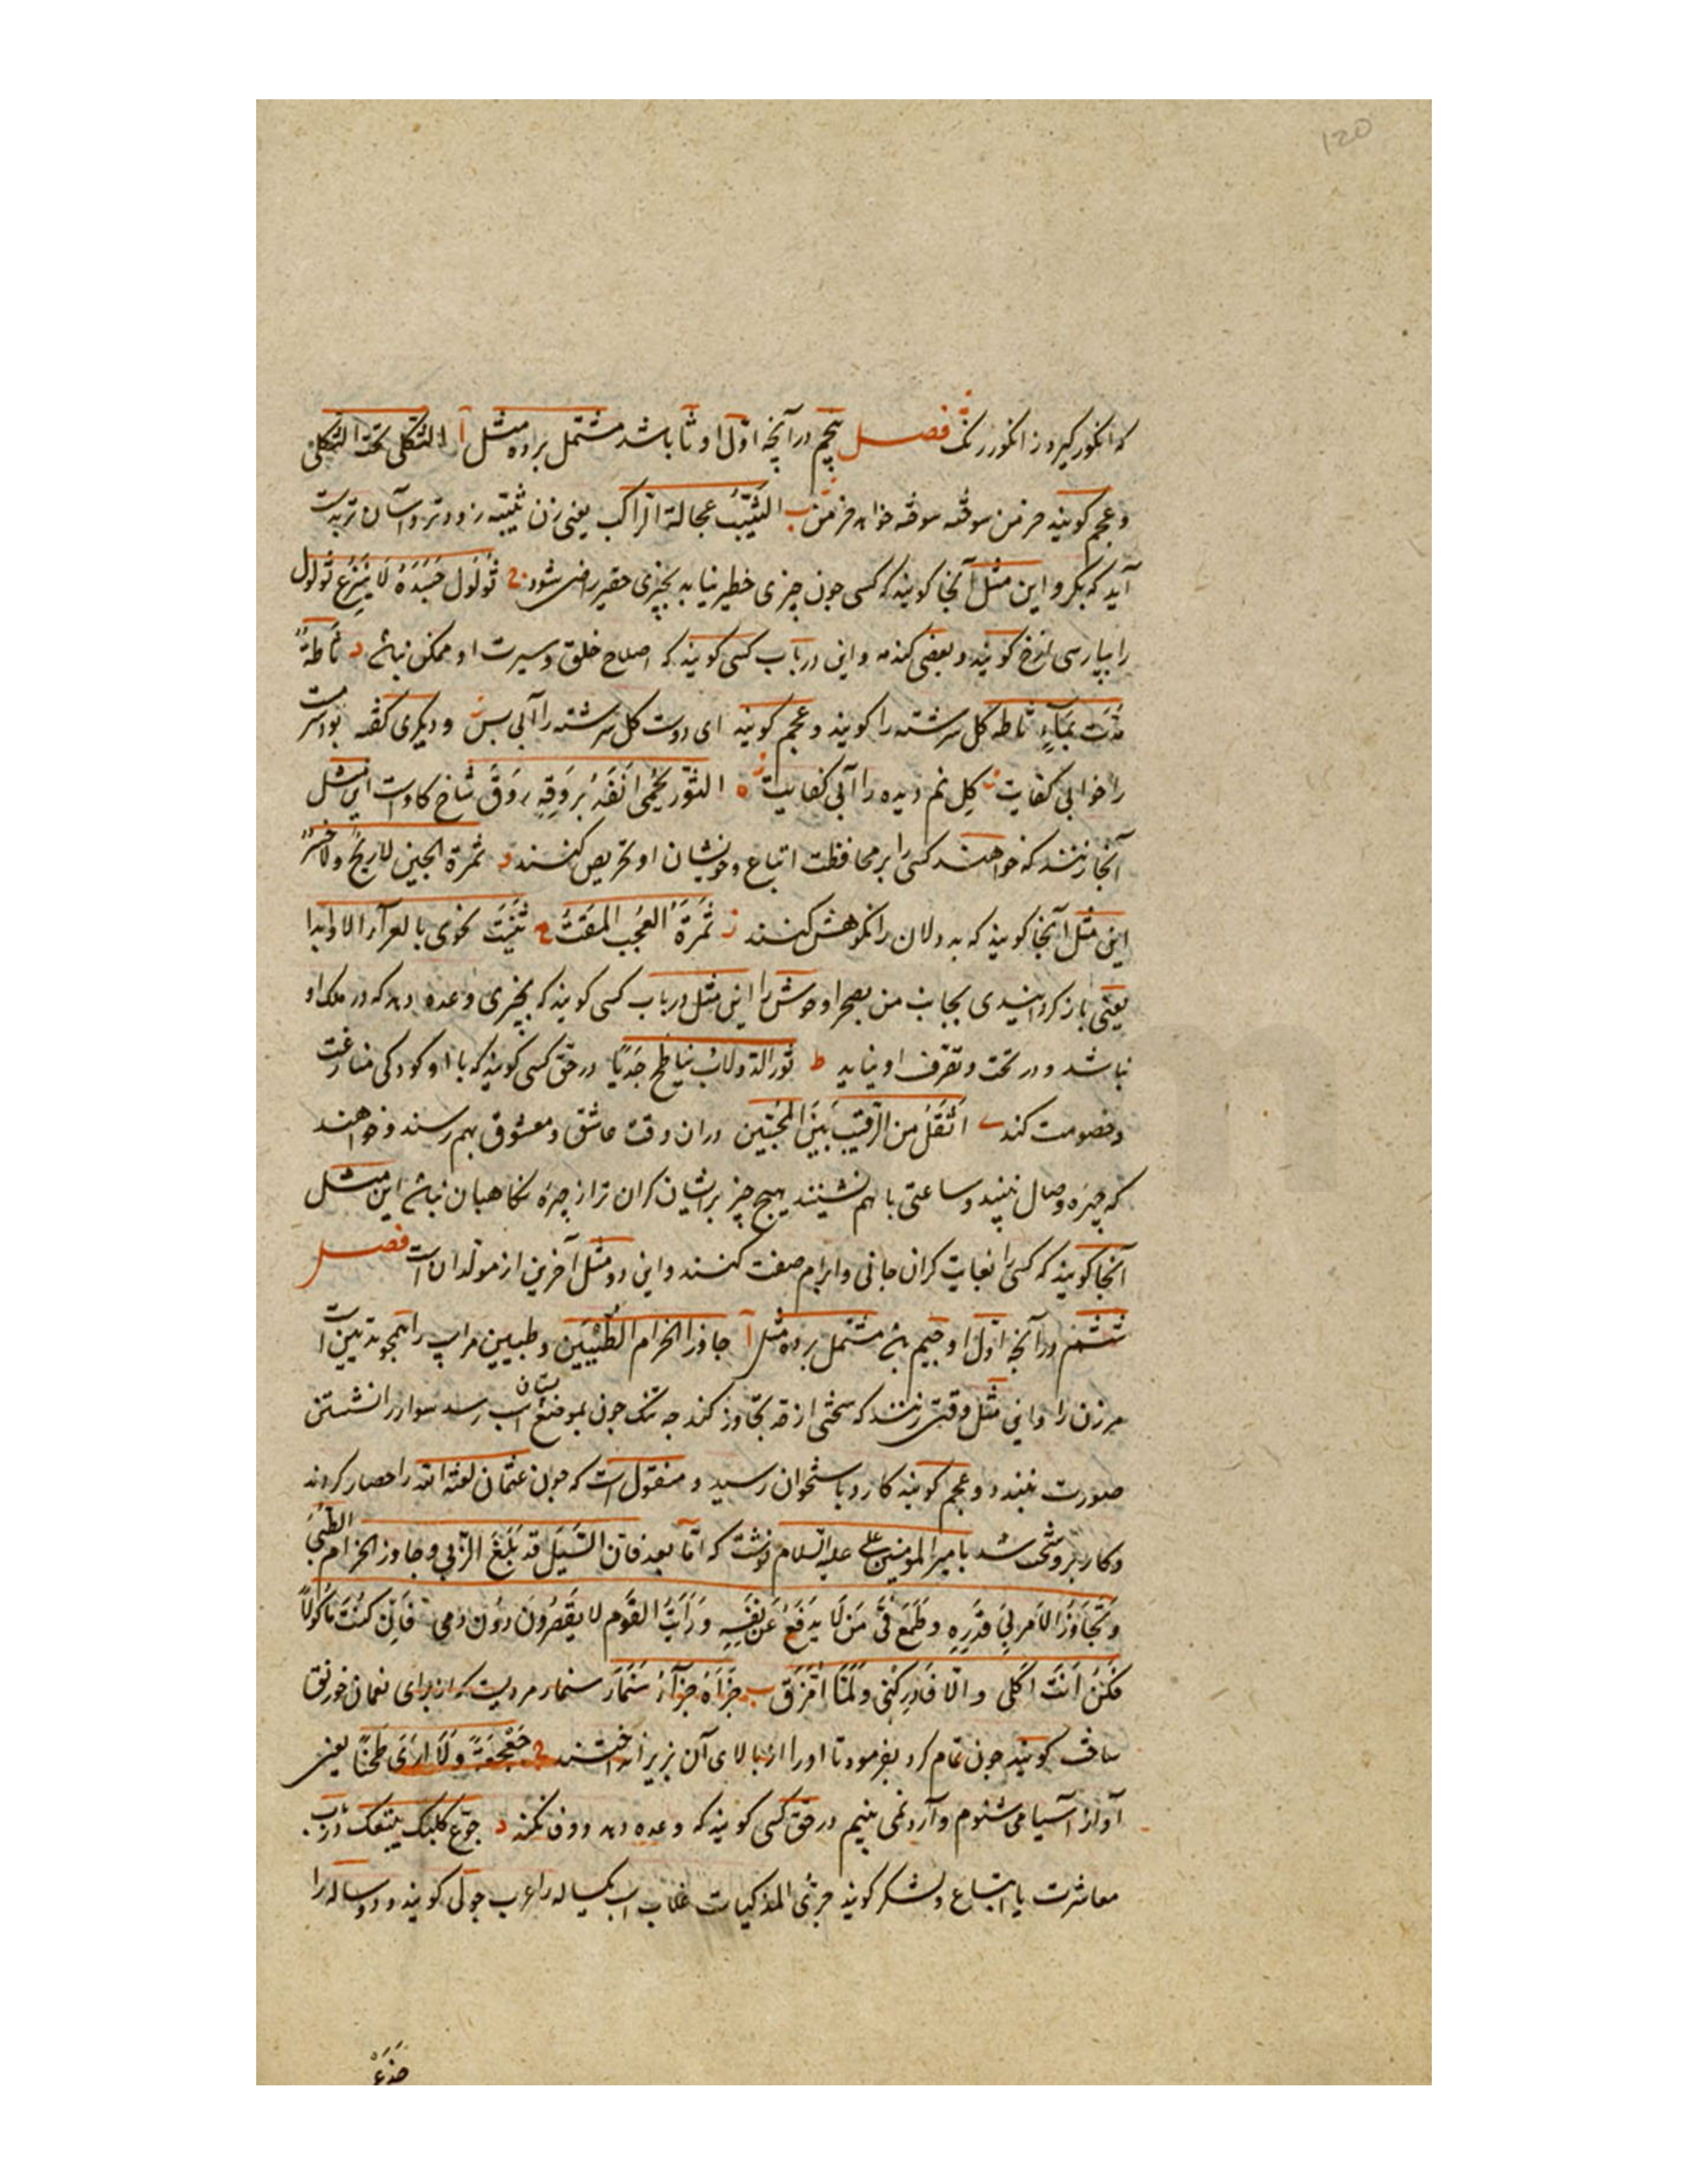 120
که انگور گیرد ز انگور رنگ فصل پنجم در آنچه اوّل او ثا باشد مشتمل بر ده مثل آ الثکلی تحبّ الثکلی
و عجم گویند خرمن سوخته سوخته خواهد خرمن ب الثیّب عجالة الراکب یعنی زن ثیّبه زودتر و آسان تر بدست
آید که بکر و این مثل آنجا گویند که کسی چون چیزی خطیر نیابد بچیزی حقیر راضی شود ج ثُولُول جَسَدَهُ لَا یُنزَع ثولول
را بپارسی ازخ گویند و بعضی کندمه و این در باب کسی گویند که اصلاح خلق و سیرت او ممکن نباشد د ثَأطَةٌ
مُدّت بمَآءٍ ثاطه گل سرشته را گویند و عجم گویند ای دوست گل سرشته را آبی بس و دیگری گفته بود مست
را خوابی کفایت گِل نم دیده را آبی کفایت ه الثّور یَحْمِی اَنفَهُ بِرَوقِهِ رَوقَ شاخ گاو است این مثل
آنجا زنند که خواهند کسی را بر محافظت اتباع و خویشان او تحریص کنند د ثمرة الجبن لا ربحٌ ولا خسرٌ
این مثل آنجا گویند که بد دلان را نکوهش کنند ز ثَمَرَةُ العُجب المَقتُ ح ثَنَیتَ نحوی بالعرآء الاوابدا
یعنی باز گردانیدی بجانب من بصحرا وحوش را این مثل در باب کسی گویند که بچیزی وعده دهد که در ملک او
نباشد و در تحت و تصرف او نیاید ط ثورالدولاب یناطح جَدیًا در حق کسی گویند که با او کودکی منازعت
و خصومت کند ی اَثقَلُ من الرّقیب بَینَ المُحِبّین در آن وقت عاشق و معشوق بهم رسند و خواهند
که چهره وصال بینند و ساعتی با هم نشینند هیچ چیز بر ایشان گران تر از چهره نگاهبان نباشد این مثل
آنجا گویند که کسی را بغایت گران جانی و ابرام صفت کنند و این دو مثل آخرین از مولّدان است فصل
ششم در آنچه اوّل او جیم باشد مشتمل بر ده مثل آ جاوز الحزام الطُبیَین و طبیین مر اسپ را همچو ثدیین است
مر زن را و این مثل وقتی زنند که سختی از حد تجاوز کند چه تنگ چون بموضع پستان اسب رسد سوار را نشستن
صورت نبندد و عجم گویند کارد باستخوان رسید و منقول است که چون عثمان لعنه الله را حصار کردند
و کار برو سخت شد بامیر المومنین علی علیه السلام نوشت که امّا بعد فان السَّیلَ قد بَلَغَ الزّبی و جاوز الحزام الطُبیَ
وَ تَجَاوَزَ الاَمر بِی قَدَرَه وَ طَمَعَ فیَّ مَن لَا یَدفَعُ عَن نَفسِهِ وَ رَأیتُ القَوم لا یقصُرونَ دوُن دمی فَاِن کُنتَ مَأکُولاً
فَکُن اَنتَ اکَلی و الّا فَادرکنی وَ لَمَّا اُمَزَّق ب جَزَاهُ جَزَآءُ سِنِمَّار سنمار مردیست که از برای نعمان خورنق
ساخت گویند چون تمام کرد بفرمود تا او را از بالای آن بزیر انداختند ج جَعجَعَةً وَ لَا اَرَی طَحنًا یعنی
آواز آسیا می شنوم و آرد نمی بینم در حق کسی گویند که وعده دهد و وفا نکند د جوّع کلبک یتبعک در باب
معاشرت با اتباع و لشکر گویند جری المذکیات غلاب اسب یکساله را عرب حولی گویند و دو ساله را
جذع